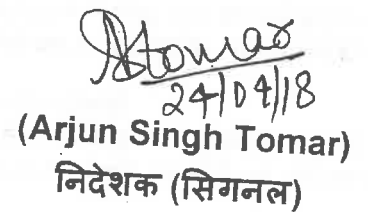 AStomar
24/04/18
(Arjun Singh Tomar)
निदेशक (सिगनल)